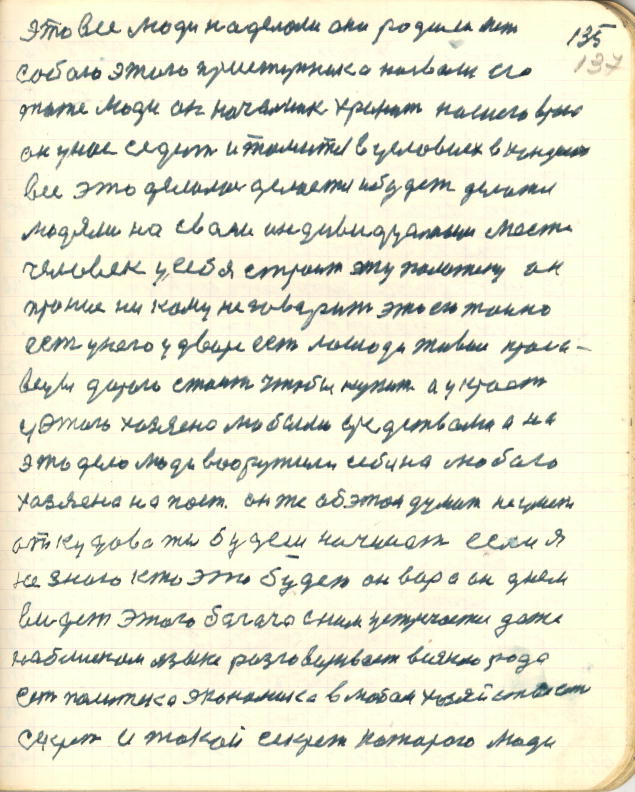 135
137
это все люди наделали они родили
собою этого приступника назвали его
тоже люди он начальник хранит нашего
он у нас седит и томится в условиях в
все это делали делаем и будем делать
людями на своем индивидуальном месте
человек у себя строит эту он
никому не говорит это его тайно
есть у него у дворе есть лошади живые
дорого стоит чтобы купить а украст
у этого хозяено любыми средствами а на
это дело люди вооружили себя на любого
хозяена на пост. он же об этом думает не умеет
откудова ты будеш начинат если я
не знаю кто это будет он вора он днем
видет этого багача сним устречается даже
на близком языке разговаривает всякого рода
ест политека экономика в любом хозяйстве ест
секрет и такой секрет которого люди